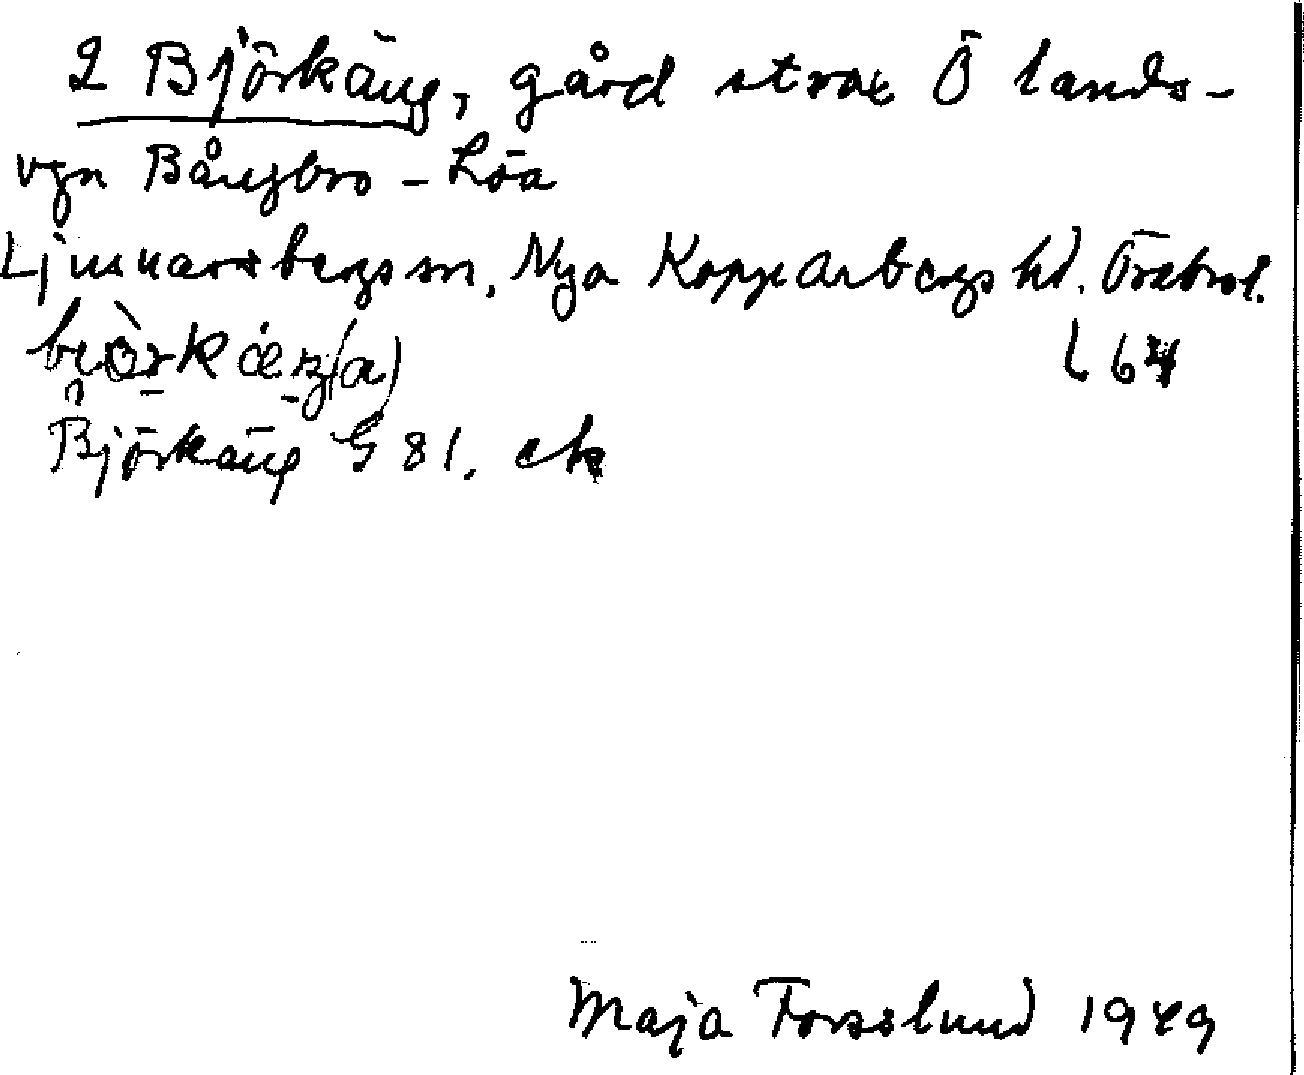 2 Björkäng, gård strax Ö lands-
vgn Bångbro - Löa
Ljusnarsbergs sn, Nya Kopparbergs hd. Örebro l.
l 64
Björkäng G 81. ek
Maja Forsslund 1949